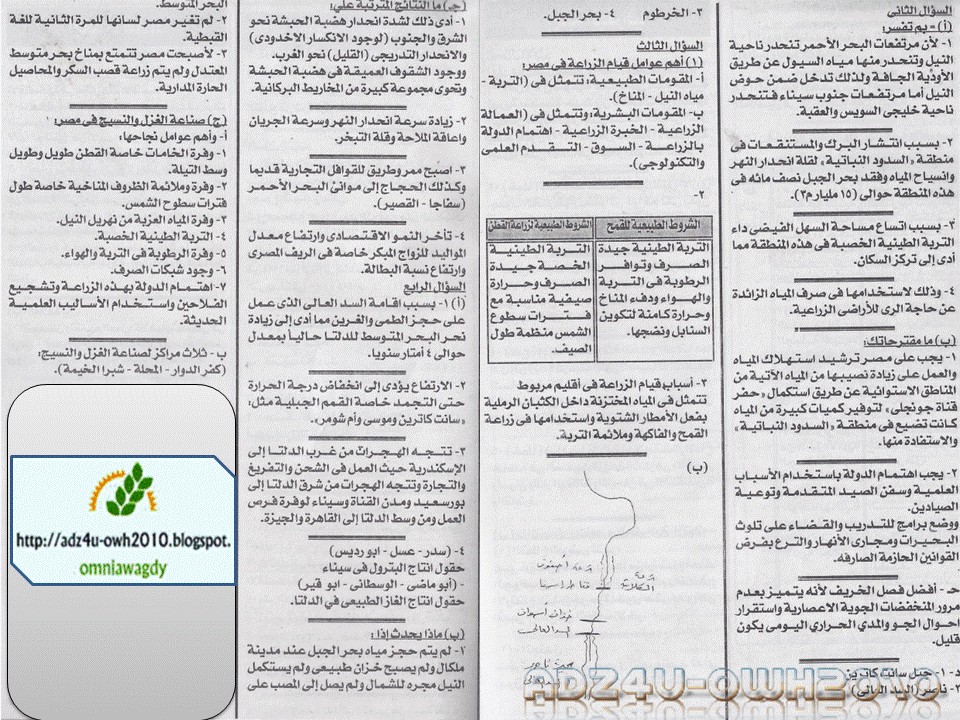 السؤال الثانى
(أ) = بم تفسر:
١- لأن مرتفعات البحر الأحمر تنحدر ناحية
النيل وتنحدر منها مياه السيول عن طريق
الأودية الجافة ولذلك تدخل ضمن حوض
النيل أما مرتفعات جنوب سيناء فتنحدر
ناحية خليجى السويس والعقبة.
٢- بسبب انتشار البرك والمستنقعات فى
منطقة «السدود النباتية» لقلة انحدار النهر
وانسياح المياه وفقد بحر الجبل نصف مائه فى
هذه المنطقة حوالى (١٥ مليار م٣).
٣- بسبب اتساع مساحة السهل الفيضى داء
التربة الطينية الخصبة فى هذه المنطقة مما
أدى إلى تركز السكان.
٤- وذلك لاستخدامها فى صرف المياه الزائدة
عن حاجة الرى للأراضى الزراعية.
(ب) ما مقترحاتك:
١- يجب على مصر ترشيد استهلاك المياه
والعمل على زيادة نصيبها من المياه الآتية من
المناطق الاستوائية عن طريق استكمال «حفر
قناة جونجلى» لتوفير كميات كبيرة من المياه
كانت تضيع فى منطقة «السدود النباتية»
والاستفادة منها.
٢- يجب اهتمام الدولة باستخدام الأسباب
العلمية وسفن الصيد المتقدمة وتوعية
الصيادين.
ووضع برامج للتدريب والقضاء على تلوث
البحيرات ومجارى الأنهار والترع بفرض
القوانين الحازمة الصارفه.
حـ- أفضل فصل الخريف لأنه يتميز بعدم
مرور المنخفضات الجوية الاعصارية واستقرار
احوال الجو والمدي الحراري اليومى يكون
قليل.
د- ١- جبل سانت كاترين
٢- ناصر (السد العالى)
٣- الخرطوم ٤- بحر الجبل.
السؤال الثالث
(١) أهم عوامل قيام الزراعة فى مصر:
أ- المقومات الطبيعية: تتمثل فى (التربة -
مياه النيل - المناخ).
ب- المقومات البشرية: وتتمثل فى (العمالة
الزراعية - الخبرة الزراعية - اهتمام الدولة
بالزراعة - السوق - التقدم العلمى
والتكنولوجى).
٢-
الشروط الطبيعية للقمح
التربة الطينية جيدة
الصرف وتوافر
الرطوبة فى التربة
والهواء ودفء المناخ
وحرارة كامنة لتكوين
السنابل ونضجها.
الشروط الطبيعية لزراعة القطن
التربة الطينية
الخصة جيدة
الصرف وحرارة
صيفية مناسبة مع
فترات سطوع
الشمس منظمة طول
الصيف.
٣- أسباب قيام الزراعة فى أقليم مربوط
تتمثل فى المياه المختزنة داخل الكثبان الرملية
بفعل الأمطار الشتوية واستخدامها فى زراعة
القمح والفاكهة وملائمة التربة.
(ب)
السد العالى
(جـ) ما النتائج المترتبة علي:
١- أدى ذلك لشدة انحدار هضبة الحبشة نحو
الشرق والجنوب (لوجود الانكسار الاخدودى)
والانحدار التدريجى (القليل) نحو الغرب.
ووجود الشقوف العميقة فى هضبة الحبشة
وتحوى مجموعة كبيرة من المخاريط البركانية.
٢- زيادة سرعة انحدار النهر وسرعة الجريان
واعاقة الملاحة وقلة التبخر.
٣- اصبح ممر وطريق للقوافل التجارية قديما
وكذلك الحجاج إلى موانئ البحر الأحمر
(سفاجا - القصير).
٤- تأخر النمو الاقتصادى وارتفاع معدل
المواليد للزواج المبكر خاصة فى الريف المصرى
وارتفاع نسبة البطالة.
السؤال الرابع
(أ) ١- بسبب إقامة السد العالى الذى عمل
على حجز الطمى والغرين مما أدى إلى زيادة
نحر البحر المتوسط للدلتا حالياً بمعدل
حوالى ٤ أمتار سنويا.
٢- الارتفاع يؤدى إلى انخفاض درجة الحرارة
حتى التجمد خاصة القمم الجبلية مثل:
«سانت كاترين وموسى وأم شومر».
٣- تتجه الهجرات من غرب الدلتا إلى
الإسكندرية حيث العمل فى الشحن والتفريغ
والتجارة وتتجه الهجرات من شرق الدلتا إلى
بورسعيد ومدن القناة وسيناء لوفرة فرص
العمل ومن وسط الدلتا إلى القاهرة والجيزة.
٤- (سدر - عسل - ابو رديس)
حقول انتاج البترول فى سيناء
- (أبو ماضى - الوسطانى - ابو قير)
حقول انتاج الغاز الطبيعى فى الدلتا.
(ب) ماذا يحدث إذا:
١- لم يتم حجز مياه بحر الجبل عند مدينة
ملكال ولم يصبح خزان طبيعى ولم يستكمل
النيل مجره للشمال ولم يصل إلى المصب على
البحر المتوسط.
٢- لم تغير مصر لسانها للمرة الثانية للغة
القبطية.
٣- لأصبحت مصر تتمتع بمناخ بحر متوسط
المعتدل ولم يتم زراعة قصب السكر والمحاصيل
الحارة المدارية.
(ج) صناعة الغزل والنسيج فى مصر:
أ- وأهم عوامل نجاحها:
١- وفرة الخامات خاصة القطن طويل وطويل
وسط التيلة.
٢- وفرة وملائمة الظروف المناخية خاصة طول
فترات سطوح الشمس.
٣- وفرة المياه العزبة من نهريل النيل.
٤- التربة الطينية الخصبة.
٥- وفرة الرطوبة فى التربة والهواء.
٦- وجود شبكات الصرف.
٧- اهتمام الدولة بهذه الزراعة وتشجيع
الفلاحين واستخدام الأساليب العلمية
الحديثة.
ب - ثلاث مراكز لصناعة الغزل والنسيج:
(كفر الدوار - المحلة - شبرا الخيمة).
http://adz4u-owh2010.blogspot.
omniawagdy
ADZ4U-OWH2010